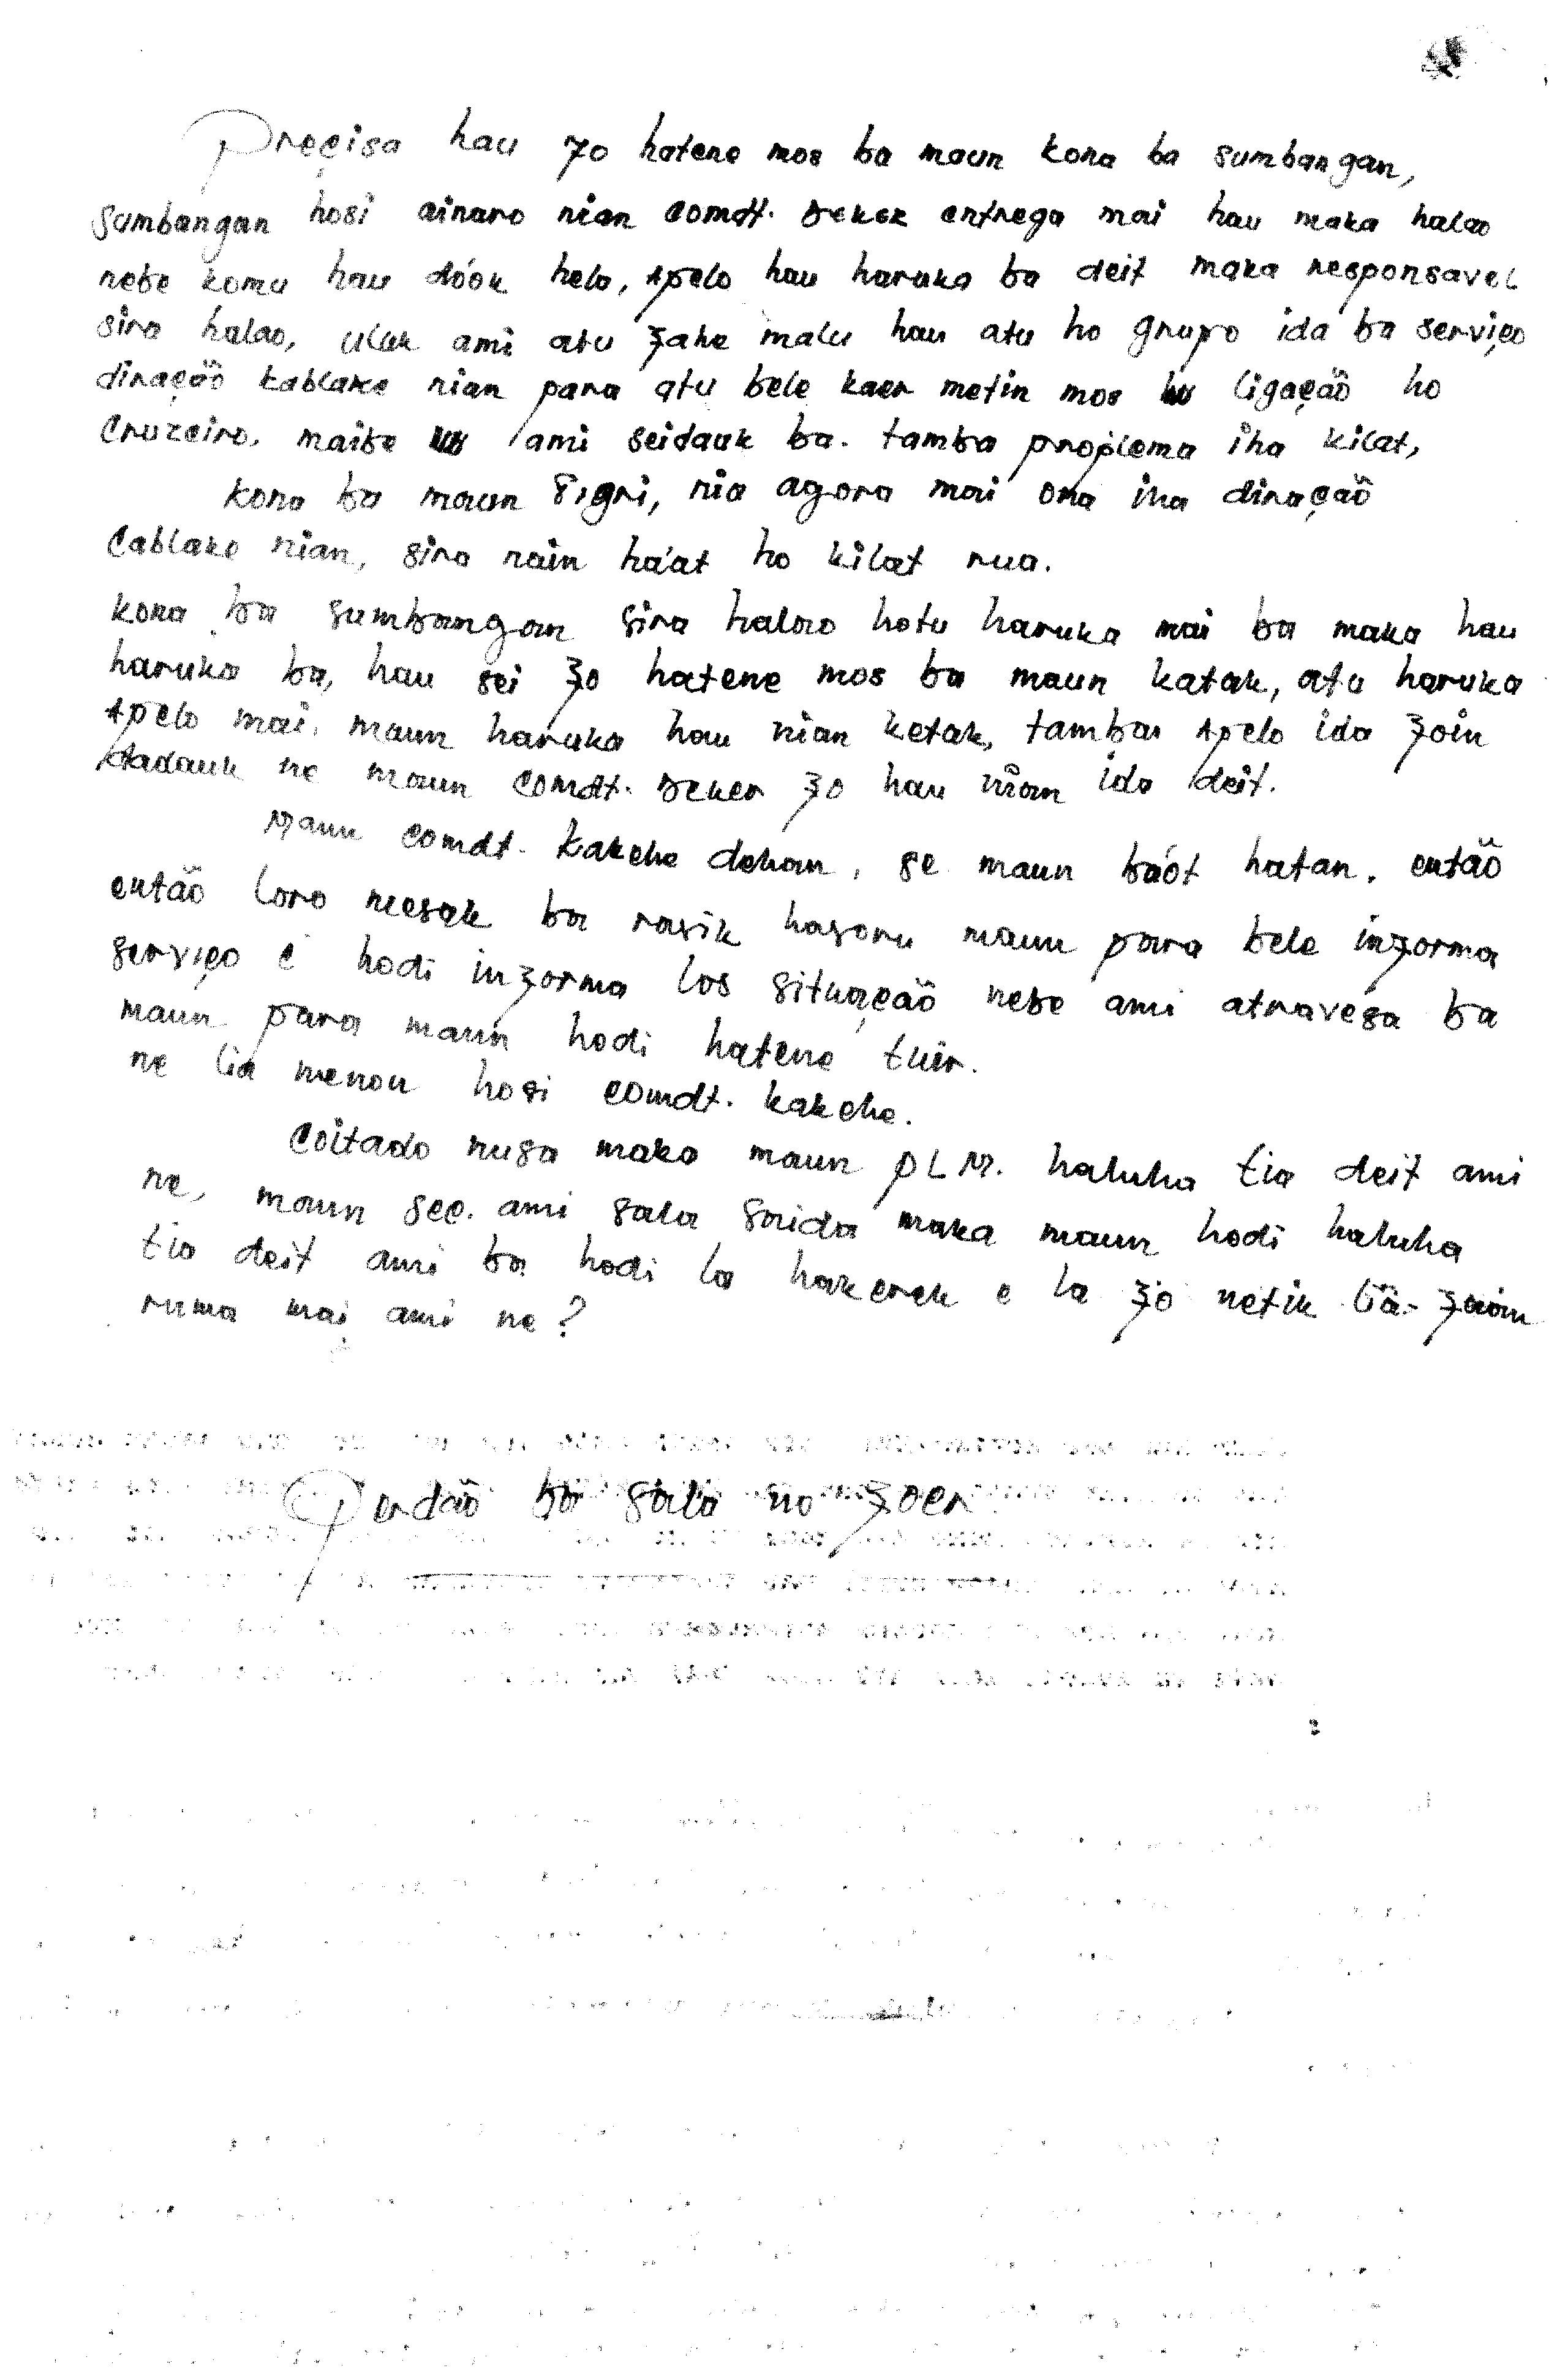 Preçisa hau fo hatene mos ba maun kona ba sumbangan,
sumbangan hosi ainaro nian comdt. deker entrega mai hau maka halao
nebe komu hau dóok hela, apelo hau haruka ba deit maka responsavel
sira halao, uluk ami atu fahe malu hau atu ho grupo ida ba serviço
diração kablake nian para atu bele kaer metin mos ligação ho
Cruzeiro. maibe ami seidauk ba. tamba proplema iha kilat,
kona ba maun Sigri, nia agora mai ona iha diração
Cablake nian, sira nain há'at ho kilat rua.
kona ba sumbangan sira halao hotu haruka mai ba maka hau
haruka ba, hau sei fo hatene mos ba maun katak, atu haruka
apelo mai. maun haruka hau nian ketak, tamba apelo ida foin
dadauk ne maun comdt. deker fo hau nian ida deit.
Maun comdt. kakehe dehan, se maun báot hatan. então
então loro mesak ba rasik hasoru maun para bele informa
serviço é hodi informa los situação nebe ami atravesa ba
maun para maun hodi hatene tuir.
ne lia menon hosi comdt. kakehe.
Coitado nusa maka maun P L M. haluha tia deit ami
ne, maun sec. ami sala saida maka maun hodi haluha
tia deit ami ba hodi la hakerek e la fó netik lia-fuan
ruma mai ami ne?
Perdão ba sala no foer